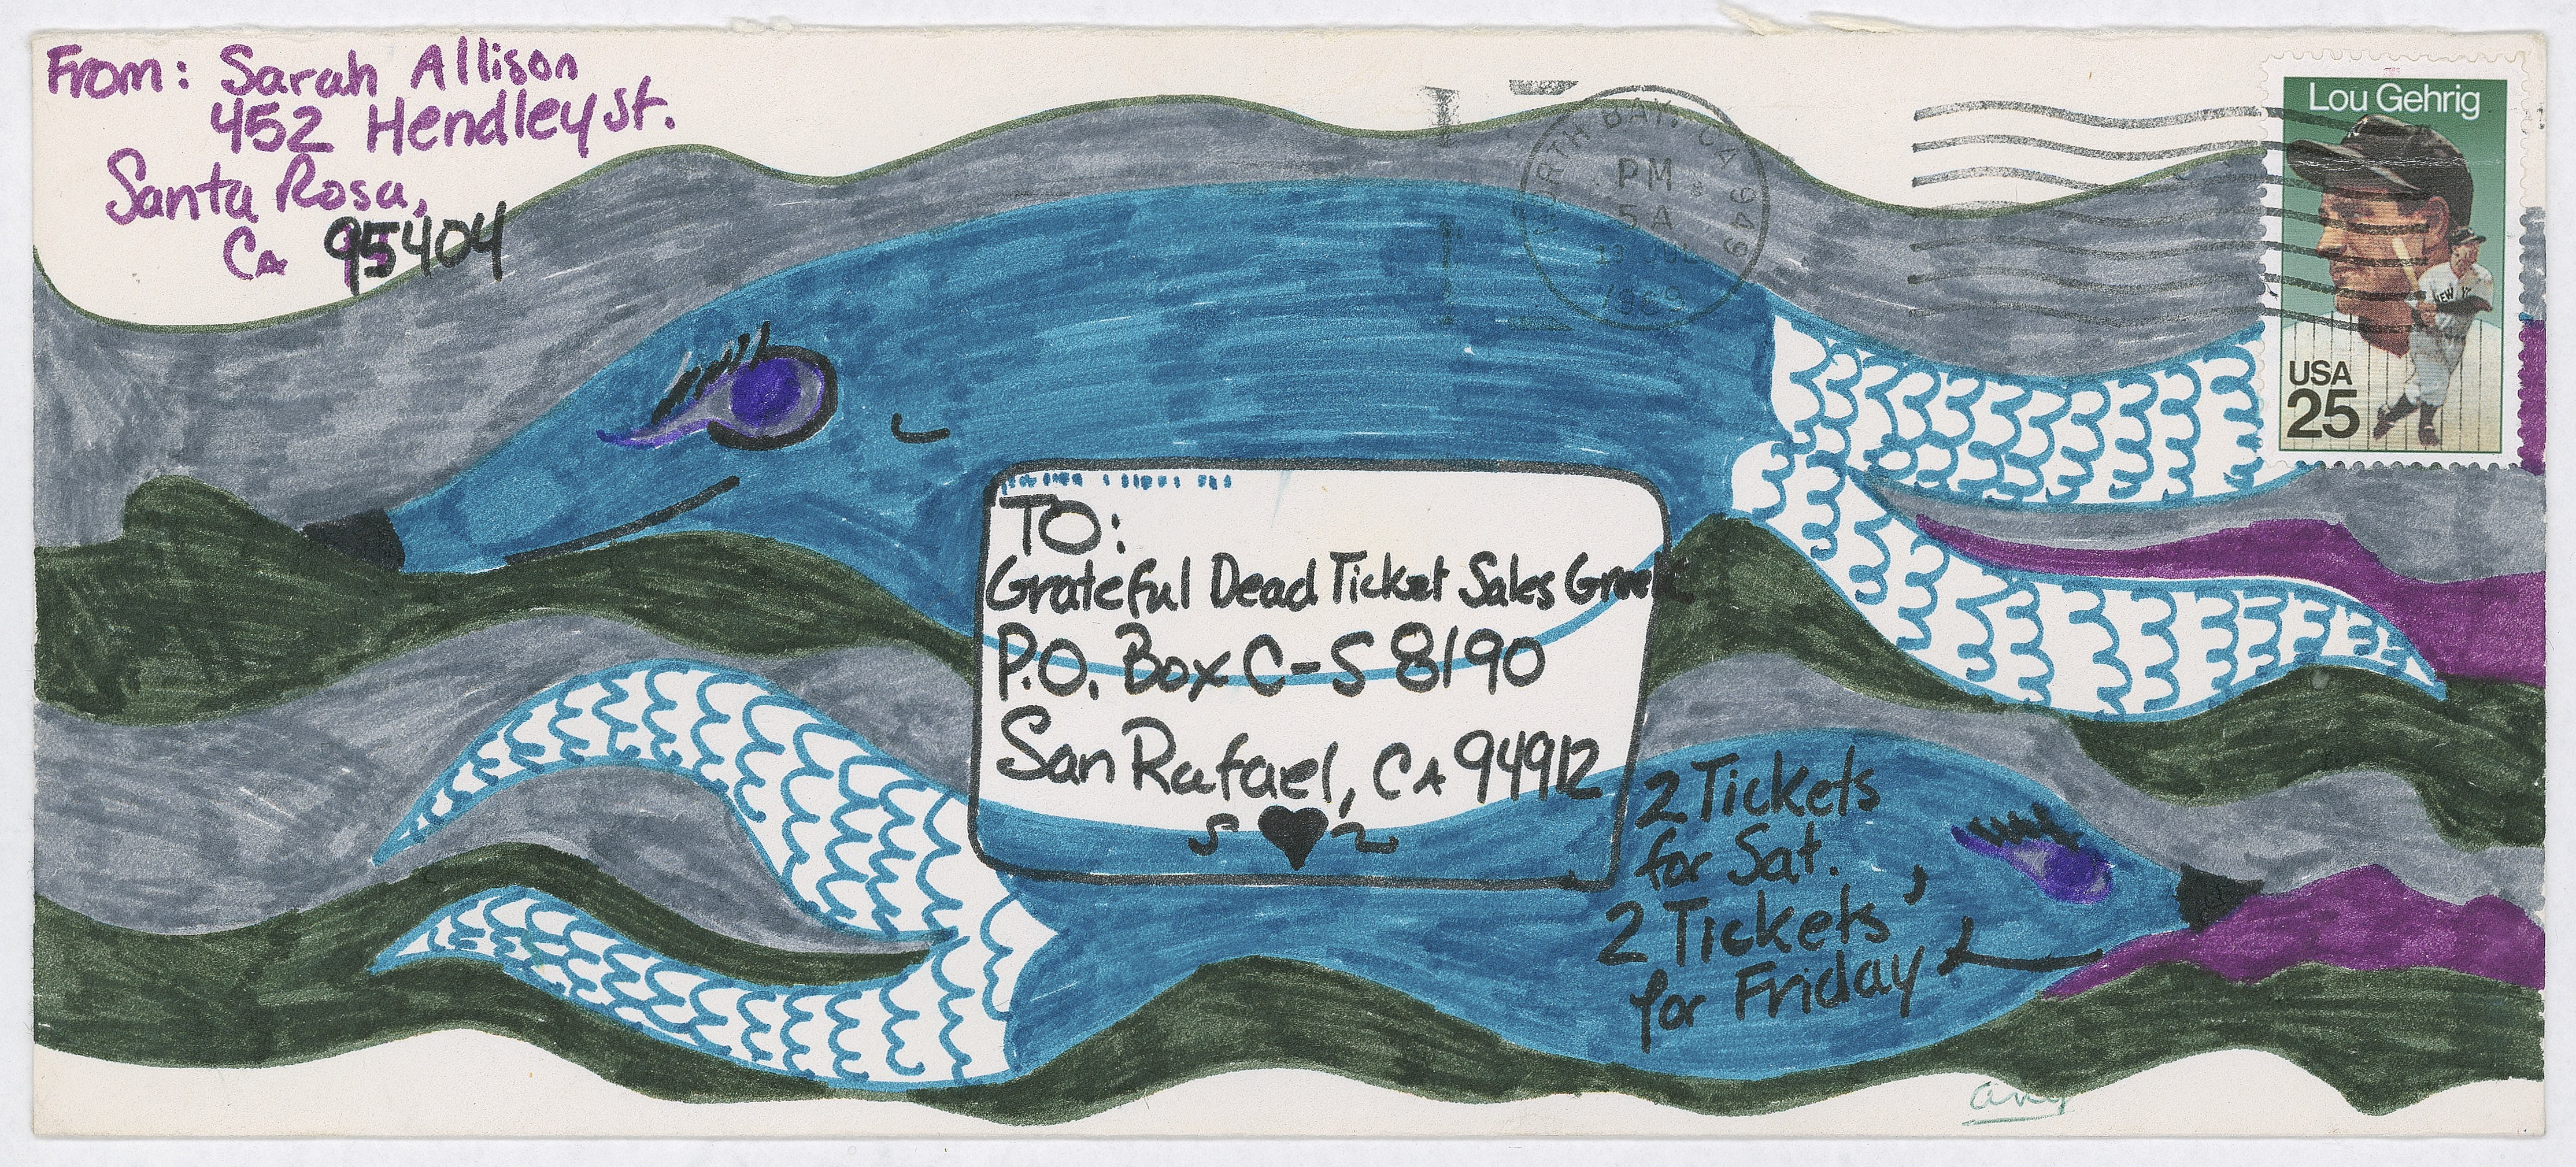 From: Sarah Allison
452 Hendley St.
Santa Rosa,
Ca 95404
NORTH BAY, CA 949
PM
5 A
13 JUL
1989
Lou Gehrig
NEW Y
USA
25
TO:
Grateful Dead Ticket Sales Greek
P.O. Box C-S 8190
San Rafael, CA 94912
S ♥ 2
2 Tickets
for Sat.
2 Tickets
for Friday
any